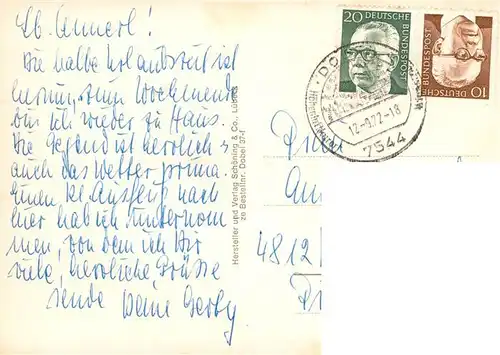 Lb. Annerl!
Die halbe Urlaubszeit ist
herum, zum Wochenende
bin ich wieder zu Haus.
Die Gegend ist herrlich u.
auch das Wetter prima.
Einen kl. Ausflug nach
hier hab ich unternom
men, von dem ich Dir
viele, herzliche Grüsse
sende Deine Gerdy
Hersteller und Verlag Schöning & Co., Lübeck
zu Bestellnr. Dobel 37-f
20 DEUTSCHE BUNDESPOST
10 DEUTSCHE BUNDESPOST
12.-9.72-18
7544
4812